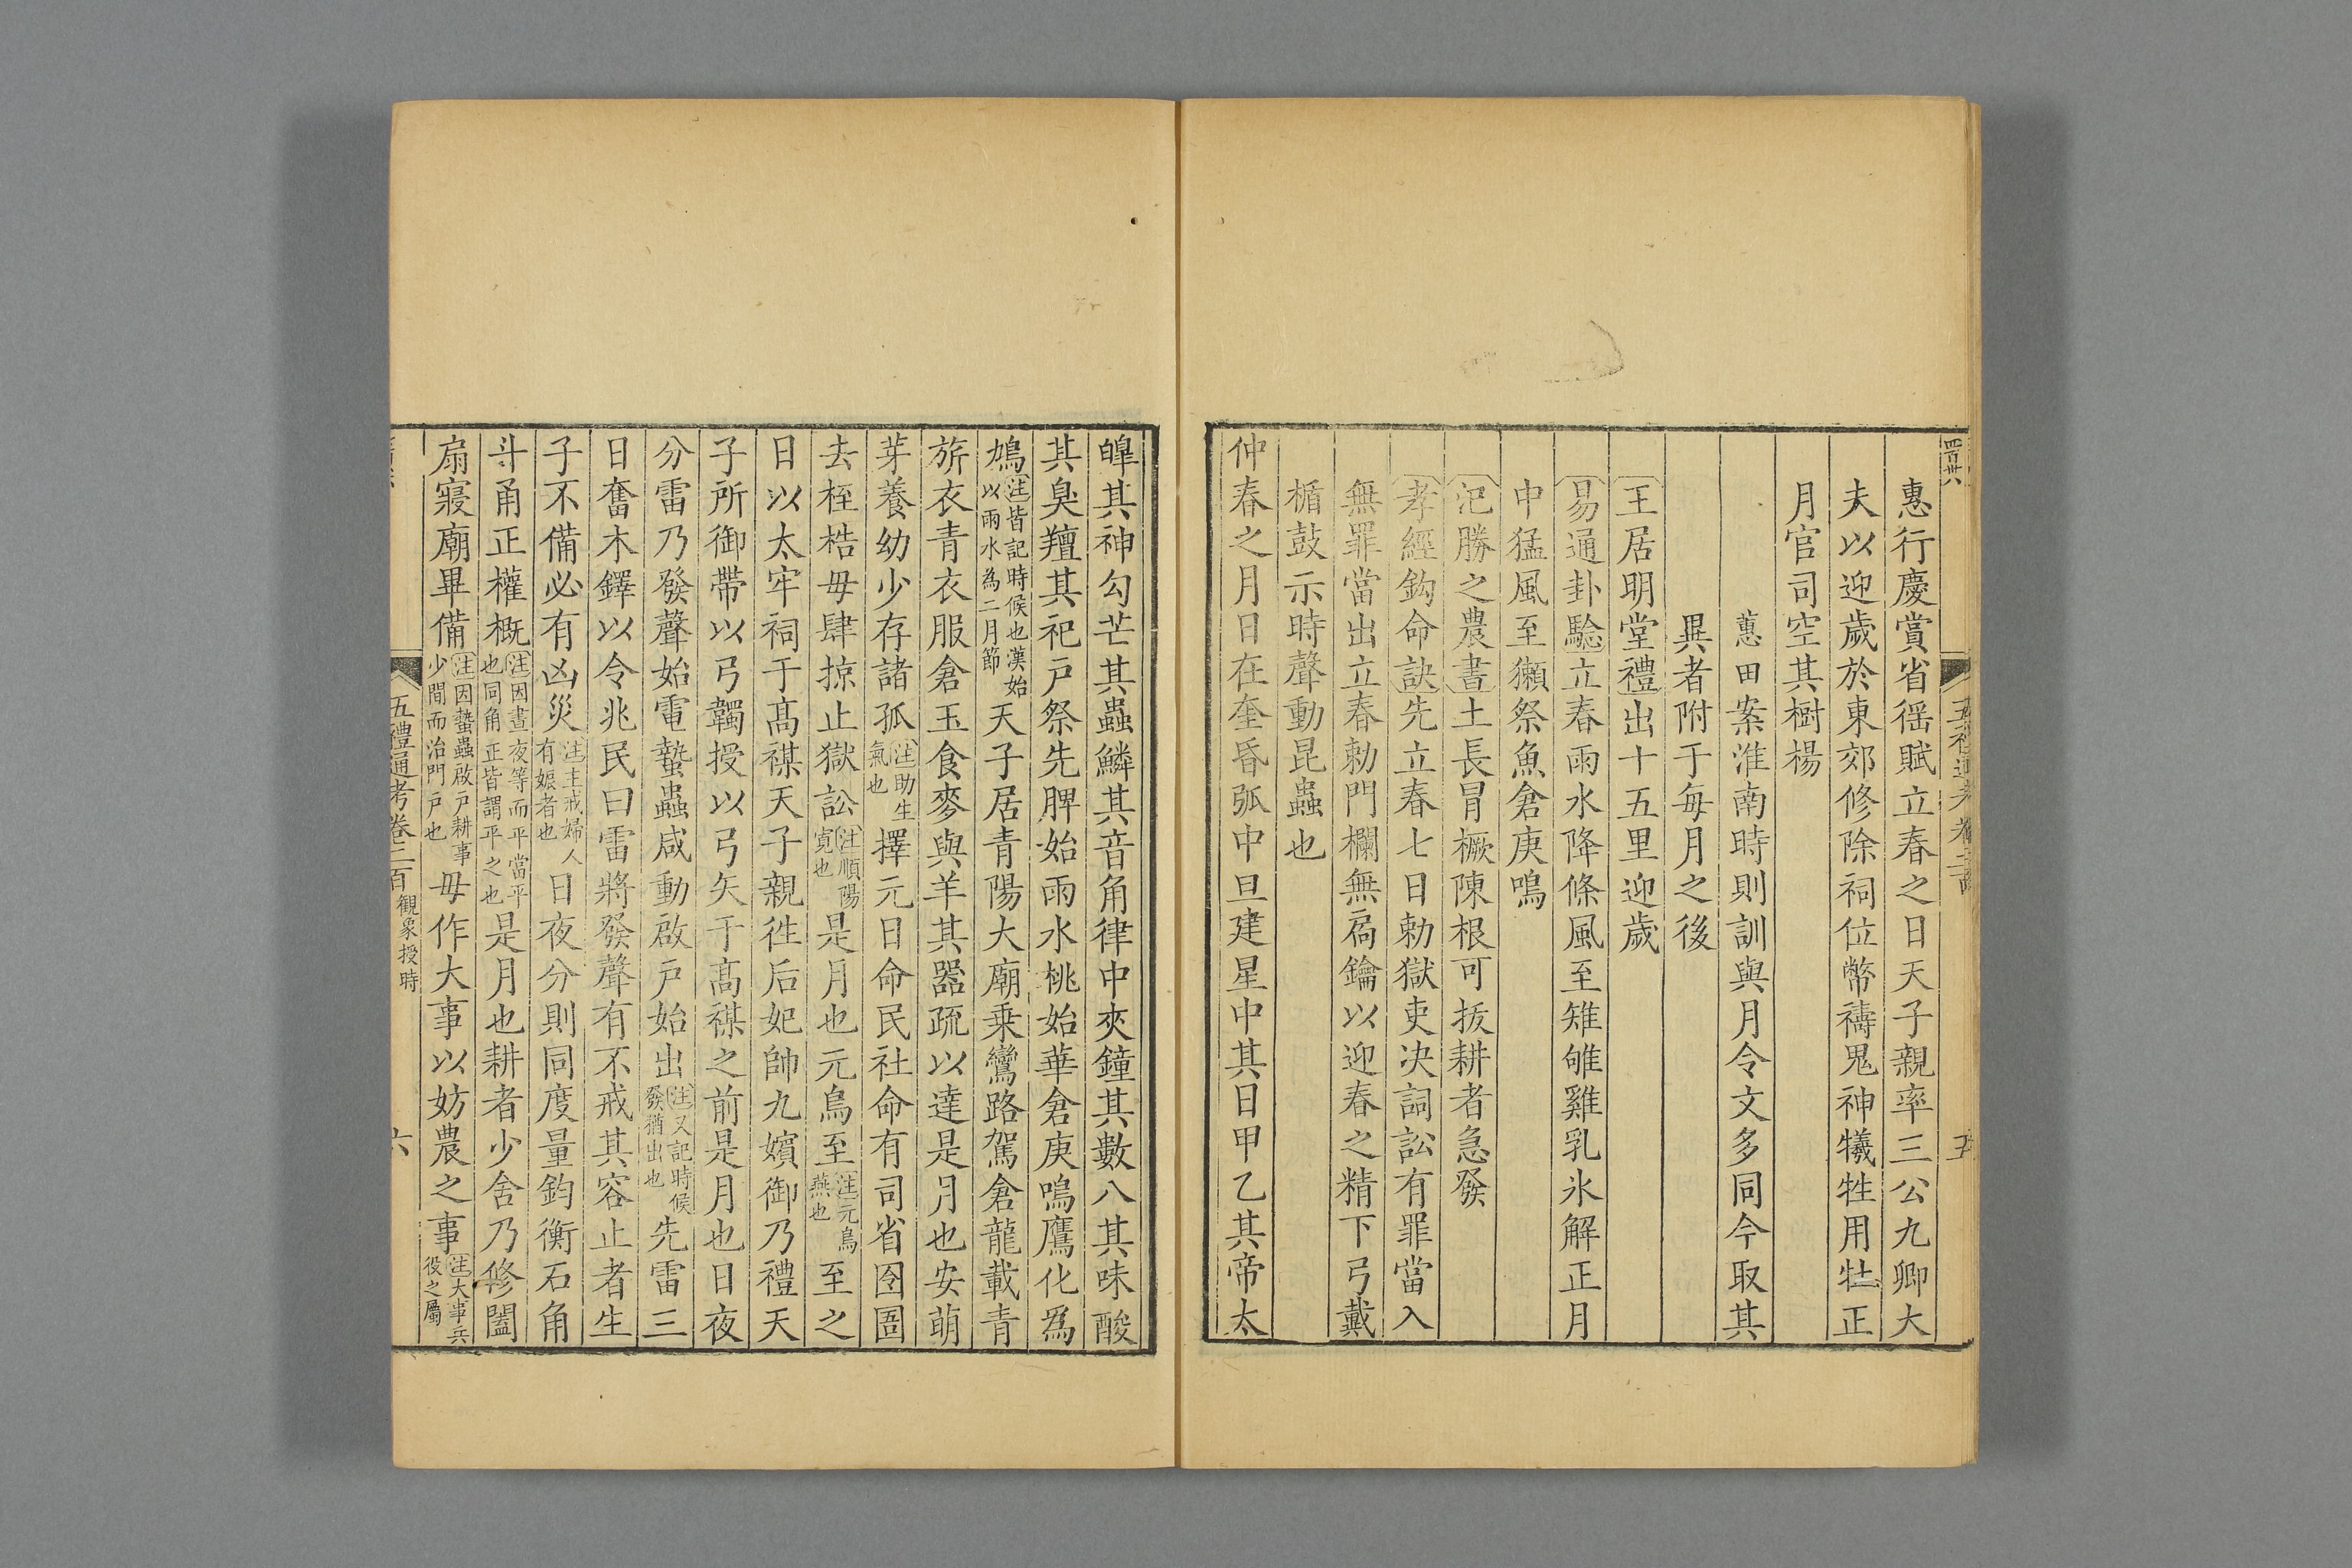 惠行慶賞省徭賦立春之日天子親率三公九卿大
夫以迎歲於東郊修除祠位幣禱鬼神犧牲用牡正
月官司空其樹楊
蕙田案淮南時則訓與月令文多同今取其
異者附于每月之後
王居明堂禮出十五里迎歲
易通卦驗立春雨水降條風至雉雊雞乳氷解正月
中猛風至獺祭魚倉庚鳴
氾勝之農書土長冒橛陳根可拔耕者急發
孝經鈎命訣先立春七日勅獄吏决詞訟有罪當入
無罪當出立春勅門欄無扄鑰以迎春之精下弓戴
楯鼓示時聲動昆蟲也
仲春之月日在奎昏弧中旦建星中其日甲乙其帝太
皥其神勾芒其蟲鱗其音角律中夾鐘其數八其味酸
其臭羶其祀戸祭先脾始雨水桃始華倉庚鳴鷹化爲
鳩注皆記時候也漢始以雨水為二月節天子居青陽大廟乗鸞路駕倉龍載青
旂衣青衣服倉玉食麥與羊其器疏以達是月也安萌
芽養幼少存諸孤注助生氣也擇元日命民社命有司省囹圄
去桎梏毋肆掠止獄訟注順陽寛也是月也元鳥至注元鳥燕也至之
日以太牢祠于髙禖天子親徃后妃帥九嬪御乃禮天
子所御帶以弓韣授以弓矢于髙禖之前是月也日夜
分雷乃發聲始電蟄蟲咸動啟戸始出注又記時候發猶出也先雷三
日奮木鐸以令兆民曰雷將發聲有不戒其容止者生
子不備必有凶災注主戒婦人有娠者也日夜分則同度量鈞衡石角
斗甬正權槪注因晝夜等而平當平也同角正皆謂平之也是月也耕者少舍乃修闔
扇寢廟畢備注因蟄蟲啟戸耕事少間而治門戸也毋作大事以妨農之事注大事兵役之屬
五禮通考卷二百 觀象授時
六